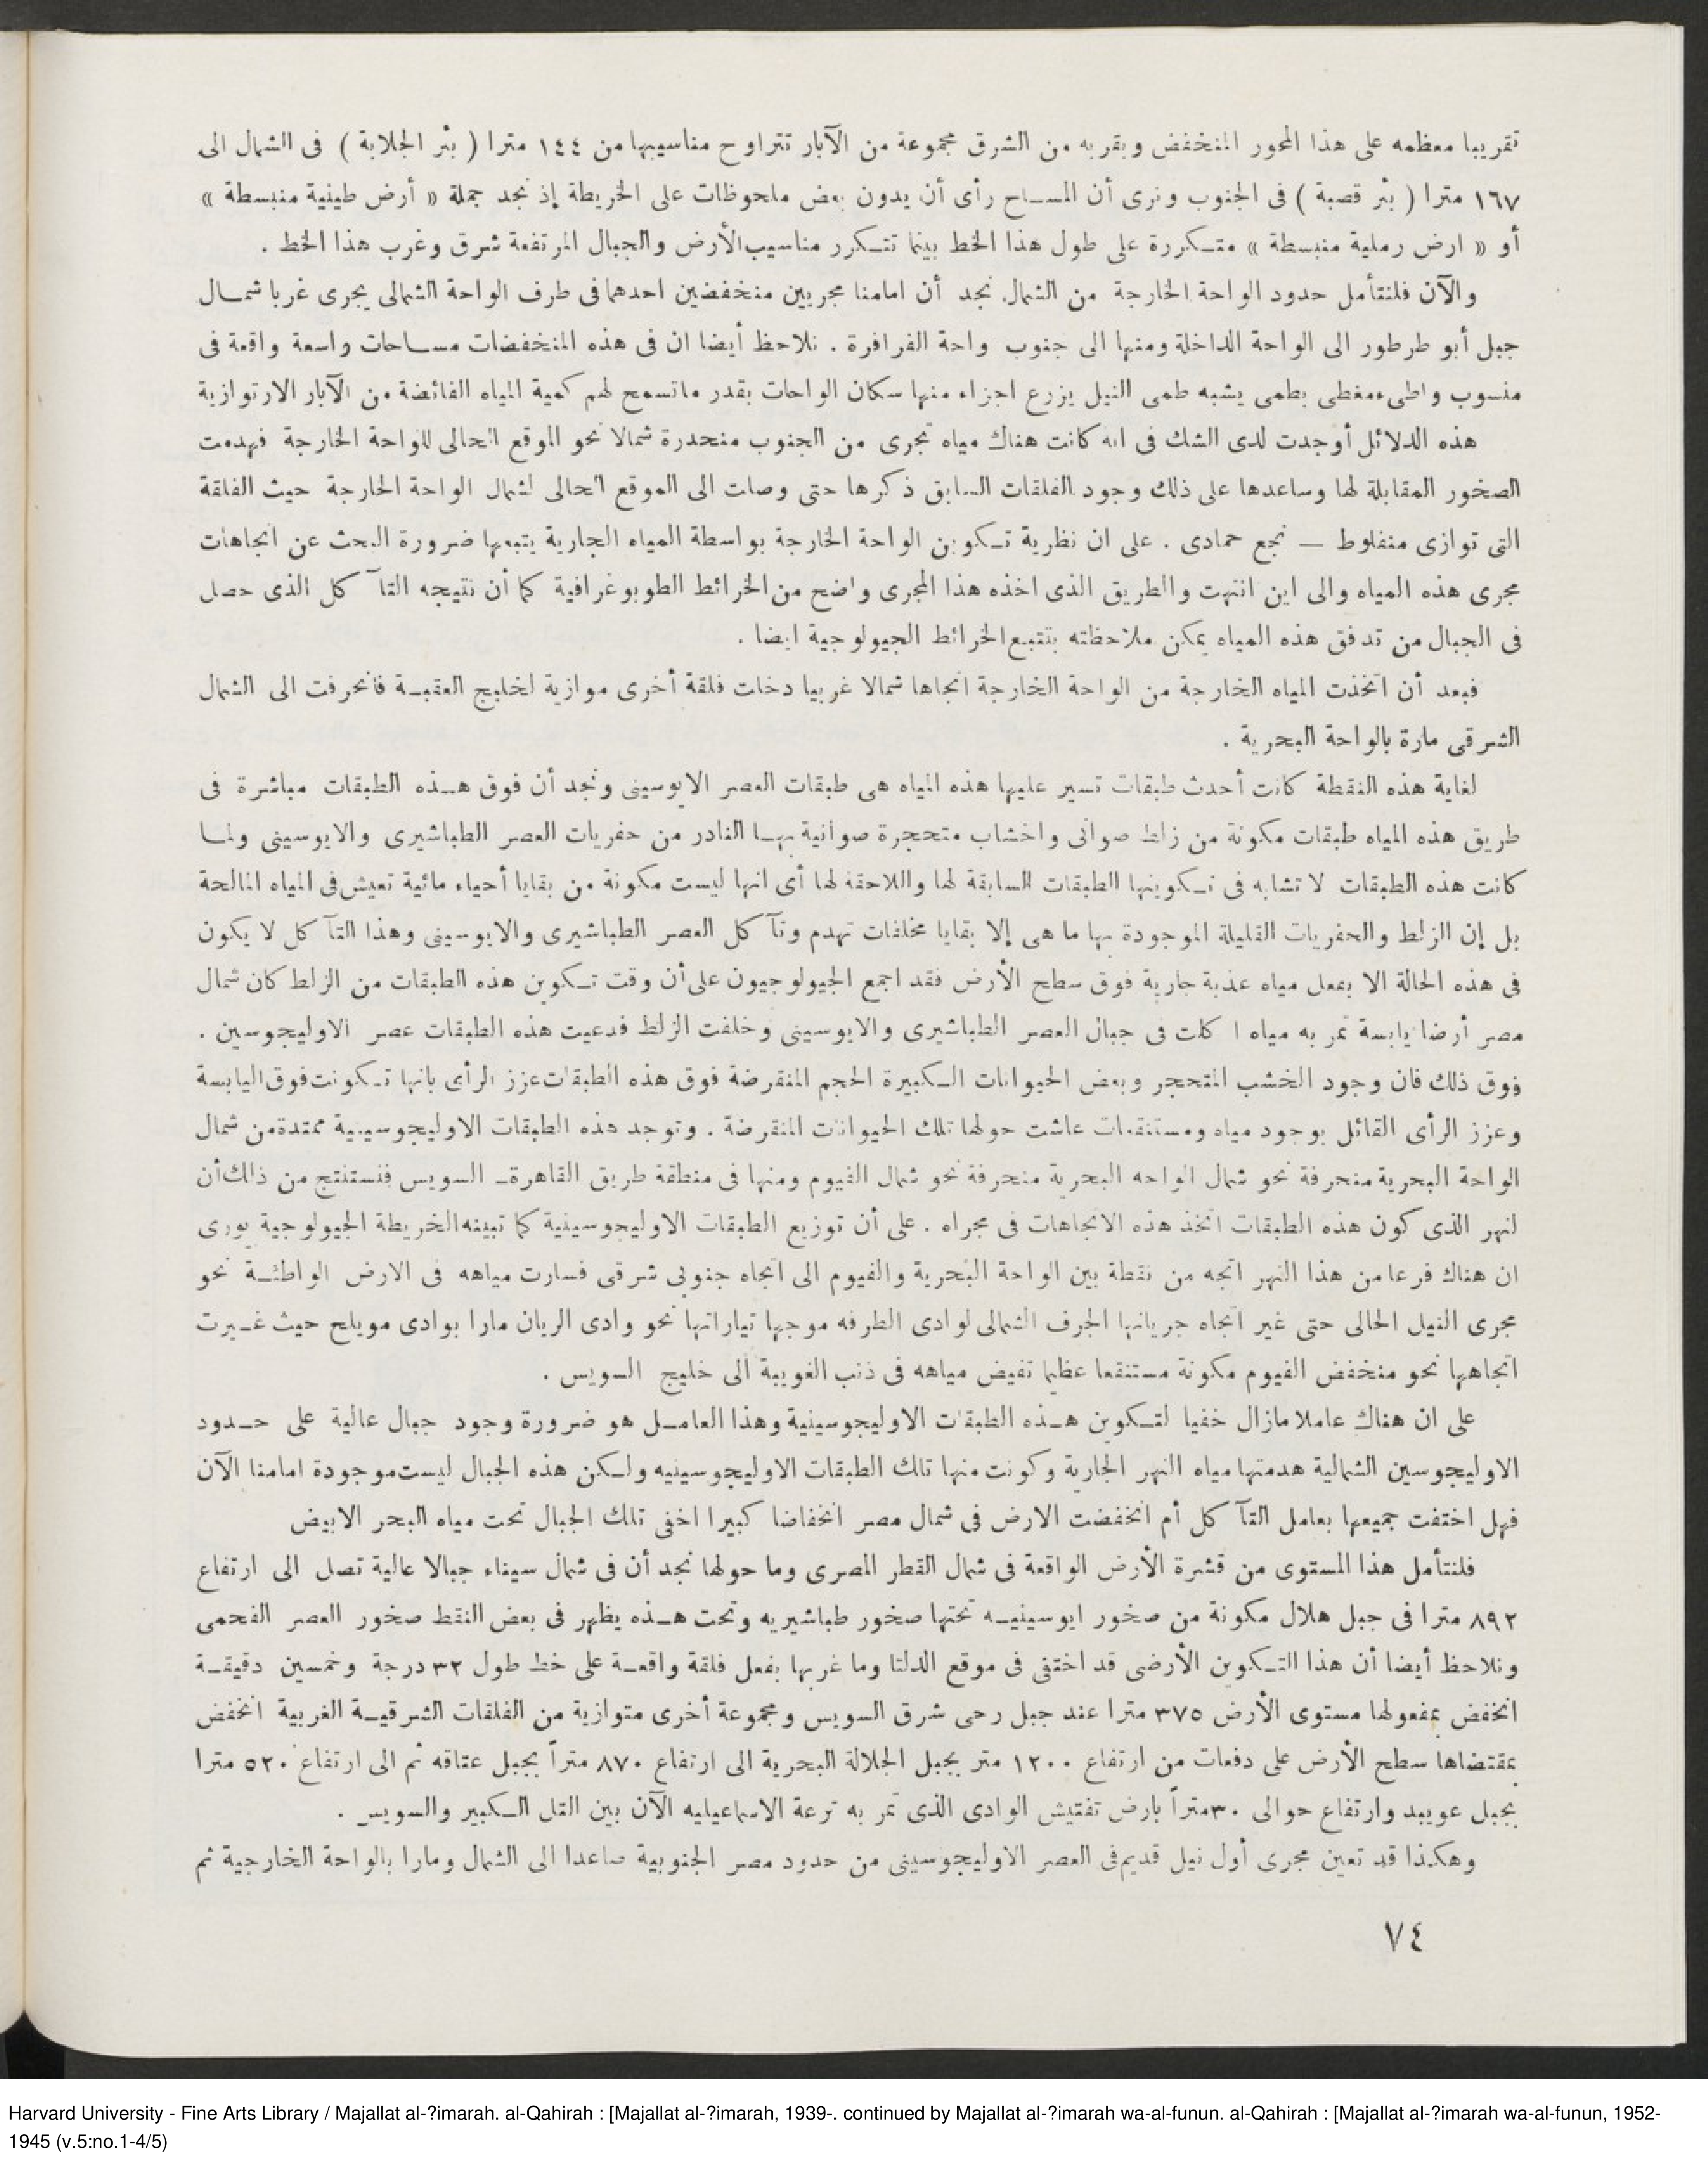 تقريبا معظمه على هذا المحور المنخفض وبقربه من الشرق مجموعة من الآبار تتراوح مناسيبها من ١٤٤ مترا ( بئر الجلابة ) فى الشمال الى
١٦٧ مترا ( بئر قصبة ) فى الجنوب ونرى أن المساح رأى أن يدون بعض ملحوظات على الخريطة إذ نجد جملة « أرض طينية منبسطة »
أو « ارض رملية منبسطة » متكررة على طول هذا الخط بينما تتكرر مناسيب الأرض والجبال المرتفعة شرق وغرب هذا الخط .
والآن فلنتأمل حدود الواحة الخارجة من الشمال نجد أن امامنا مجريين منخفضين احدهما فى طرف الواحة الشمالى يجرى غربا شمال
جبل أبو طرطور الى الواحة الداخلة ومنها الى جنوب واحة الفرافرة . نلاحظ أيضا ان فى هذه المنخفضات مساحات واسعة واقعة فى
منسوب واطىء مغطى بطمى يشبه طمى النيل يزرع اجزاء منها سكان الواحات بقدر ماتسمح لهم كمية المياه الفائضة من الآبار الارتوازية
هذه الدلائل أوجدت لدى الشك فى انه كانت هناك مياه تجرى من الجنوب منحدرة شمالا نحو الموقع الحالى للواحة الخارجة فهدمت
الصخور المقابلة لها وساعدها على ذلك وجود الفلقات السابق ذكرها حتى وصلت الى الموقع الحالى لشمال الواحة الخارجة حيث الفلقة
التى توازى منفلوط — نجع حمادى . على ان نظرية تكوين الواحة الخارجة بواسطة المياه الجارية يتبعها ضرورة البحث عن اتجاهات
مجرى هذه المياه والى اين انتهت والطريق الذى اخذه هذا المجرى واضح من الخرائط الطوبوغرافية كما أن نتيجه التآكل الذى حصل
فى الجبال من تدفق هذه المياه يمكن ملاحظته بتتبع الخرائط الجيولوجية ايضا .
فبعد أن اتخذت المياه الخارجة من الواحة الخارجة اتجاها شمالا غربيا دخلت فلقة أخرى موازية لخليج العقبة فانحرفت الى الشمال
الشرقى مارة بالواحة البحرية .
لغاية هذه النقطة كانت أحدث طبقات تسير عليها هذه المياه هى طبقات العصر الايوسينى ونجد أن فوق هذه الطبقات مباشرة فى
طريق هذه المياه طبقات مكونة من زلط صوانى واخشاب متحجرة صوانية بها النادر من حفريات العصر الطباشيرى والايوسينى ولما
كانت هذه الطبقات لا تشابه فى تكوينها الطبقات السابقة لها واللاحقة لها أى انها ليست مكونة من بقايا أحياء مائية تعيش فى المياه المالحة
بل إن الزلط والحفريات القليلة الموجودة بها ما هى إلا بقايا مخلفات تهدم وتآكل العصر الطباشيرى والايوسينى وهذا التآكل لا يكون
فى هذه الحالة الا بفعل مياه عذبة جارية فوق سطح الأرض فقد اجمع الجيولوجيون على أن وقت تكوين هذه الطبقات من الزلط كان شمال
مصر أرضا يابسة تمر به مياه اكلت فى جبال العصر الطباشيرى والايوسينى وخلفت الزلط فدعيت هذه الطبقات عصر الاوليجوسين .
فوق ذلك فان وجود الخشب المتحجر وبعض الحيوانات الكبيرة الحجم المنقرضة فوق هذه الطبقات عزز الرأى بانها تكونت فوق اليابسة
وعزز الرأى القائل بوجود مياه ومستنقعات عاشت حولها تلك الحيوانات المنقرضة . وتوجد هذه الطبقات الاوليجوسينية ممتدة من شمال
الواحة البحرية منحرفة نحو شمال الواحه البحرية منحرفة نحو شمال الفيوم ومنها فى منطقة طريق القاهرة — السويس فنستنتج من ذلك أن
لنهر الذى كون هذه الطبقات اتخذ هذه الاتجاهات فى مجراه . على أن توزيع الطبقات الاوليجوسينية كما تبينه الخريطة الجيولوجية يورى
ان هناك فرعا من هذا النهر اتجه من نقطة بين الواحة البحرية والفيوم الى اتجاه جنوبى شرقى فسارت مياهه فى الارض الواطئة نحو
مجرى النيل الحالى حتى غير اتجاه جريانها الجرف الشمالى لوادى الطرفه موجها تياراتها نحو وادى الريان مارا بوادى مويلح حيث غيرت
اتجاهها نحو منخفض الفيوم مكونة مستنقعا عظيما تفيض مياهه فى ذنب الغويبة الى خليج السويس .
على ان هناك عاملا مازال خفيا لتكوين هذه الطبقات الاوليجوسينية وهذا العامل هو ضرورة وجود جبال عالية على حدود
الاوليجوسين الشمالية هدمتها مياه النهر الجارية وكونت منها تلك الطبقات الاوليجوسينيه ولكن هذه الجبال ليست موجودة امامنا الآن
فهل اختفت جميعها بعامل التآكل أم انخفضت الارض فى شمال مصر انخفاضا كبيرا اخفى تلك الجبال تحت مياه البحر الابيض
فلنتأمل هذا المستوى من قشرة الأرض الواقعة فى شمال القطر المصرى وما حولها نجد أن فى شمال سيناء جبالا عالية تصل الى ارتفاع
٨٩٢ مترا فى جبل هلال مكونة من صخور ايوسينيه تحتها صخور طباشيريه وتحت هذه يظهر فى بعض النقط صخور العصر الفحمى
ونلاحظ أيضا أن هذا التكوين الأرضى قد اختفى فى موقع الدلتا وما غربها بفعل فلقة واقعة على خط طول ٣٢ درجة وخمسين دقيقة
انخفض بمفعولها مستوى الأرض ٣٧٥ مترا عند جبل رحى شرق السويس ومجموعة أخرى متوازية من الفلقات الشرقية الغربية انخفض
بمقتضاها سطح الأرض على دفعات من ارتفاع ١٢٠٠ متر بجبل الجلالة البحرية الى ارتفاع ٨٧٠ متراً بجبل عتاقه ثم الى ارتفاع ٥٢٠ مترا
بجبل عويبد وارتفاع حوالى ٣٠ متراً بارض تفتيش الوادى الذى تمر به ترعة الاسماعيليه الآن بين التل الكبير والسويس .
وهكذا قد تعين مجرى أول نيل قديم فى العصر الاوليجوسينى من حدود مصر الجنوبية صاعدا الى الشمال ومارا بالواحة الخارجية ثم
٧٤
Harvard University - Fine Arts Library / Majallat al-?imarah. al-Qahirah : [Majallat al-?imarah, 1939-. continued by Majallat al-?imarah wa-al-funun. al-Qahirah : [Majallat al-?imarah wa-al-funun, 1952-
1945 (v.5:no.1-4/5)